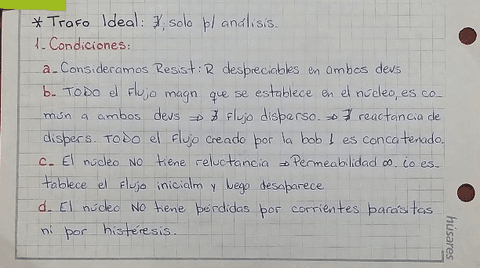 * Trafo Ideal: ∄, solo p/ análisis.
1- Condiciones:
a- Consideramos Resist: R despreciables en ambos devs
b- TODO el Flujo magn que se establece en el núcleo, es co-
mún a ambos devs ⇒ ∄ Flujo disperso. ⇒ ∄ reactancia de
dispers. TODO el Flujo creado por la bob 1 es concatenado.
c- El núcleo NO tiene reluctancia ⇒ Permeabilidad ∞. Io es-
tablece el Flujo inicialm y luego desaparece
d- El núcleo NO tiene pérdidas por corrientes parásitas
ni por histéresis.
húsares